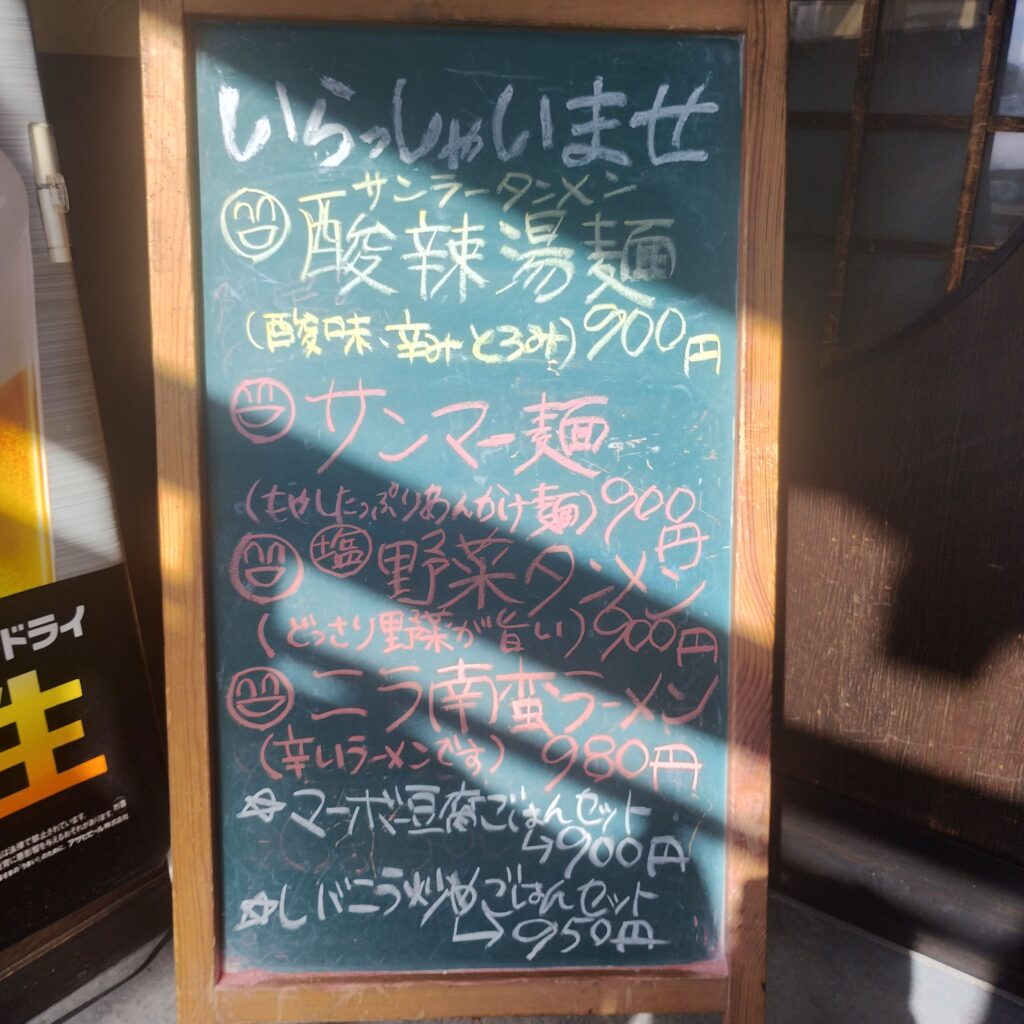 いらっしゃいませ
サンラータンメン
酸辣湯麺
(酸味、辛みとろみ)900円
サンマー麺
(もやしたっぷりあんかけ麺)900円
塩野菜タンメン
(どっさり野菜が旨い)900円
ニラ南蛮ラーメン
(辛いラーメンです)980円
☆マーボー豆腐ごはんセット
↳900円
☆レバニラ炒めごはんセット
↳950円
ドライ
生
アサヒビール株式会社